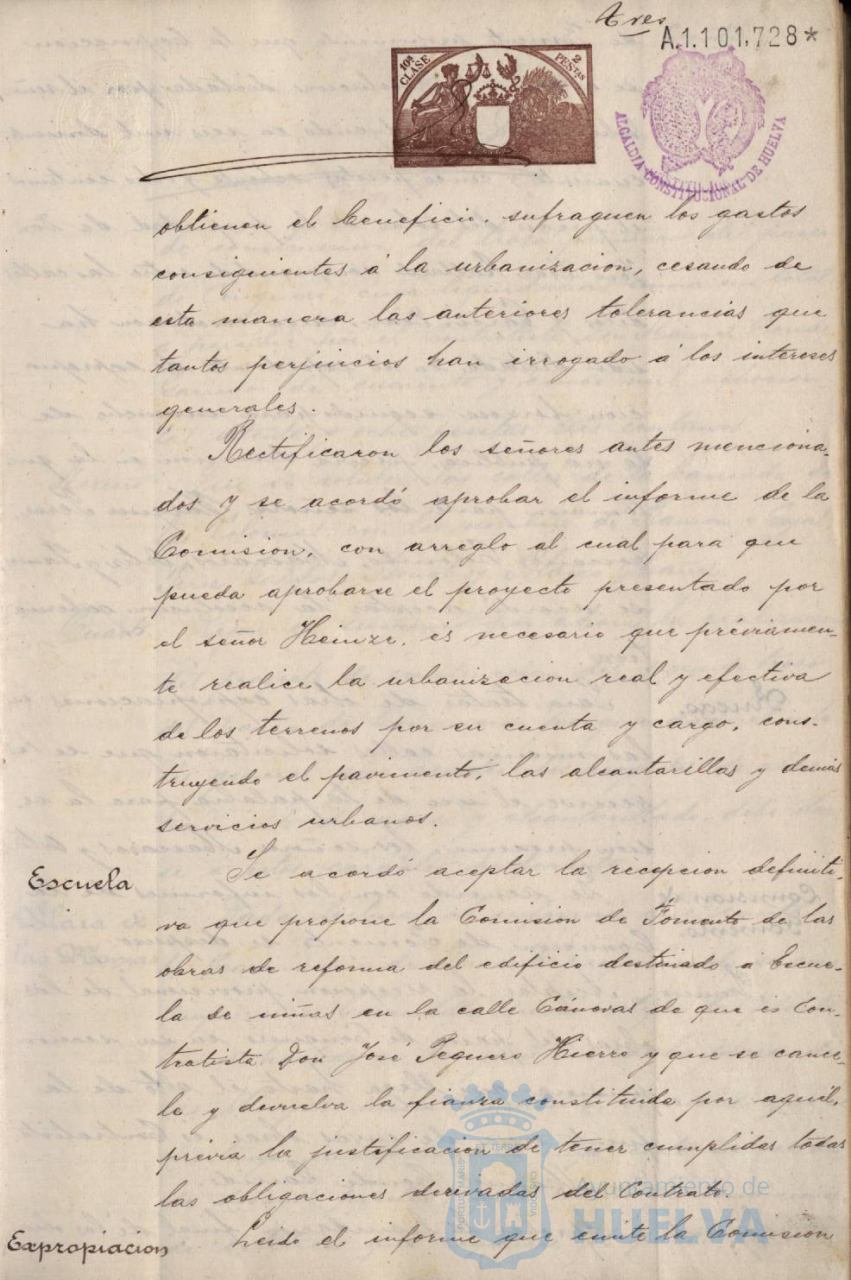 Tres
A.1.101,728*
10ª CLASE
2 PESTAS
ALCALDIA CONSTITUCIONAL DE HUELVA
obtienen el beneficio, sufraguen los gastos
consiguientes á la urbanizacion, cesando de
esta manera las anteriores tolerancias que
tantos perjuicios han irrogado á los intereses
generales.
Rectificaron los señores antes menciona-
dos y se acordó aprobar el informe de la
Comision, con arreglo al cual para que
pueda aprobarse el proyecto presentado por
el señor Heinze, es necesario que préviamen-
te realice la urbanizacion real y efectiva
de los terrenos por su cuenta y cargo, cons-
truyendo el pavimento, las alcantarillas y demás
servicios urbanos.
Escuela
Se acordó aceptar la recepcion definiti-
va que propone la Comision de Fomento de las
obras de reforma del edificio destinado á Escue-
la de niñas en la calle Cánovas de que es Con-
tratista Don José Peguero Hierro y que se cance-
le y devuelva la fianza constituida por aquél,
prévia la justificacion de tener cumplidas todas
las obligaciones derivadas del Contrato.
Expropiacion
Leido el informe que emite la Comision
Ayuntamiento de
HUELVA